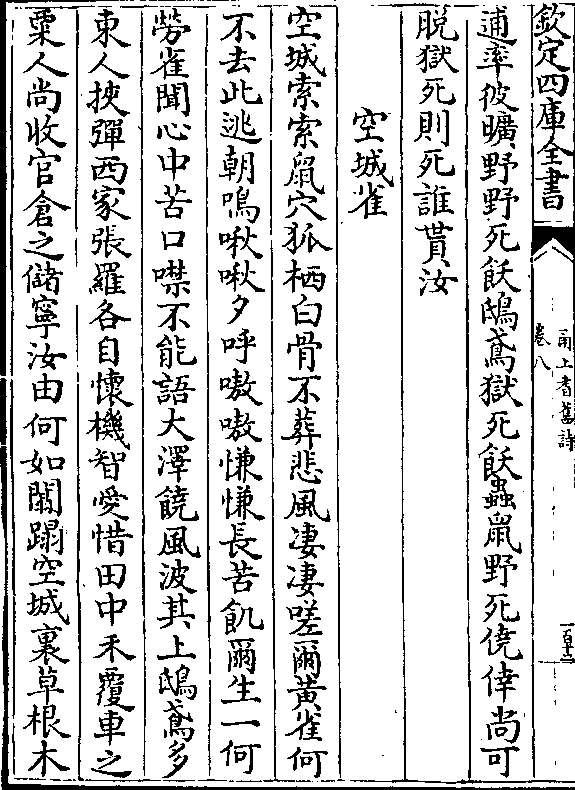 欽定四庫全書
甬上耆舊詩
卷八
一百十二
逋率彼曠野野死飫鴟鳶獄死飫蟲鼠野死僥倖尚可
脱獄死則死誰貰汝
空城雀
空城索索鼠穴狐栖白骨不葬悲風凄凄嗟爾黄雀何
不去此逃朝鳴啾啾夕呼嗷嗷慊慊長苦飢爾生一何
勞雀聞心中苦口噤不能語大澤饒風波其上鴟鳶多
東人挾彈西家張羅各自懷機智愛惜田中禾覆車之
粟人尚收官倉之儲寧汝由何如闒蹋空城裏草根木